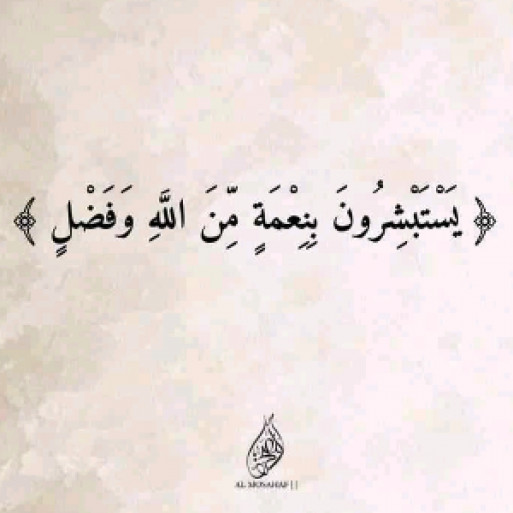 ﴿ يَسْتَبْشِرُونَ بِنِعْمَةٍ مِّنَ اللَّهِ وَفَضْلٍ ﴾
AL MOSAHAF||